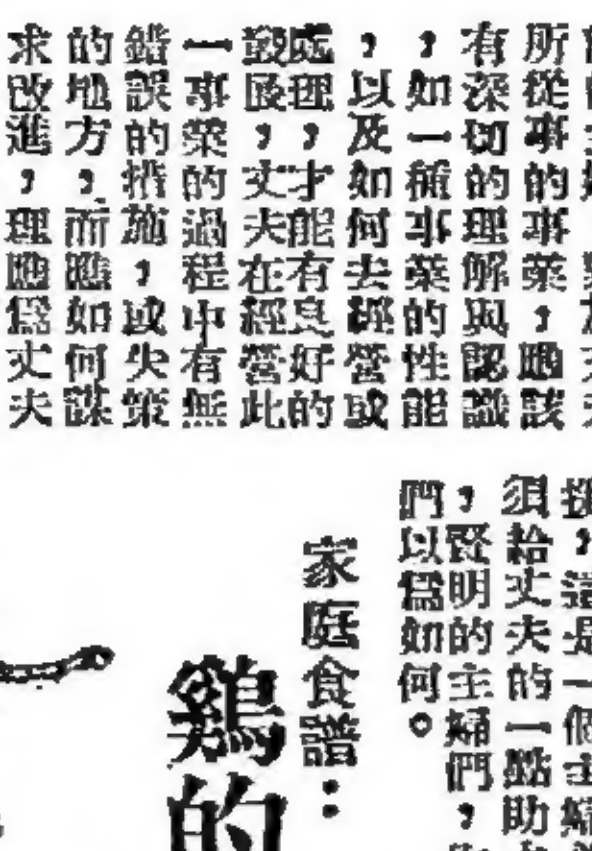 所從事的事業，應該
有深切的理解與認識
，如一種事業的性能
，以及如何去經營或
處理，才能有良好的
發展，丈夫在經營此
一事業的過程中有無
錯誤的措施，或失策
的地方，而應如何謀
求改進，理應爲丈夫
，這是一個主婦
須給丈夫的一點助
，賢明的主婦們，
們以爲如何。
家庭食譜：
鷄的